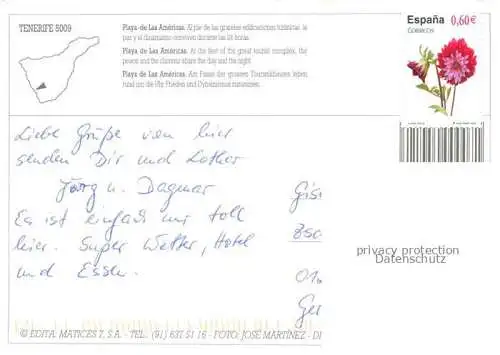 TENERIFE 5009
Playa de Las Américas. Al pie de los grandes edificaciones turísticas, la
paz y el dinamismo conviven durante las 24 horas.
Playa de Las Américas. At the feet of the great tourist complex, the
peace and the clamour share the day and the night.
Playa de Las Américas. Am Fusse der grossen Touristikhäuser, leben
rund um die Uhr Frieden und Dynamismus zusammen.
España
0,60€
CORREOS
Liebe Grüße von hier
senden Dir und Lothar
Jörg u. Dagmar
Es ist einfach nur toll
hier. Super Wetter, Hotel
und Essen.
Gis
Zsc
01
Ger
privacy protection
Datenschutz
© EDITA: MATICES 7, S.A. - TEL.: (91) 637 51 16 - FOTO: JOSE MARTINEZ - DI